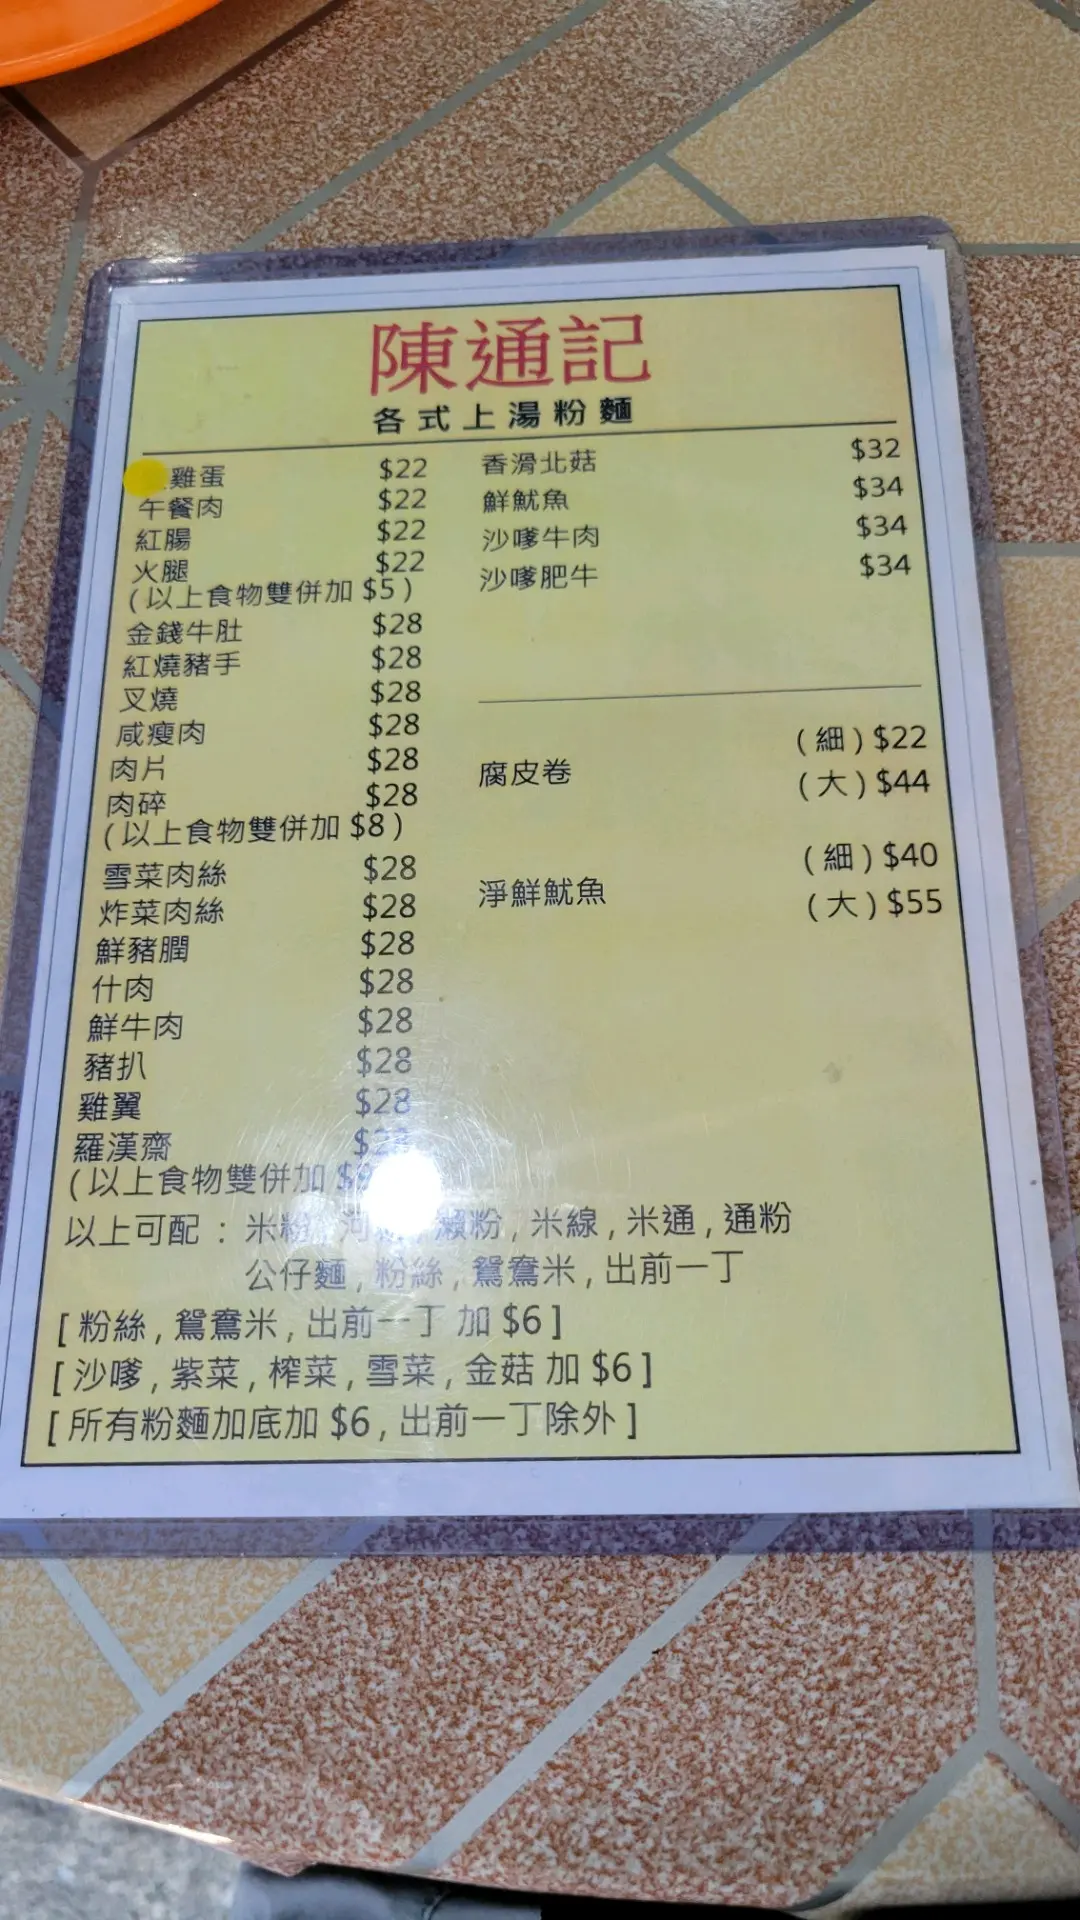 陳通記
各式上湯粉麵
雞蛋 $22
午餐肉 $22
紅腸 $22
火腿 $22
(以上食物雙併加 $5)
金錢牛肚 $28
紅燒豬手 $28
叉燒 $28
咸瘦肉 $28
肉片 $28
肉碎 $28
(以上食物雙併加 $8)
雪菜肉絲 $28
炸菜肉絲 $28
鮮豬膶 $28
什肉 $28
鮮牛肉 $28
豬扒 $28
雞翼 $28
羅漢齋
(以上食物雙併加
香滑北菇 $32
鮮魷魚 $34
沙嗲牛肉 $34
沙嗲肥牛 $34
腐皮卷 (細) $22
(大) $44
淨鮮魷魚 (細) $40
(大) $55
以上可配 : 米粉, 河 瀨粉, 米線, 米通, 通粉
公仔麵, 粉絲, 鴛鴦米, 出前一丁
[粉絲, 鴛鴦米, 出前一丁 加 $6]
[沙嗲, 紫菜, 榨菜, 雪菜, 金菇 加 $6]
[所有粉麵加底加 $6, 出前一丁除外]